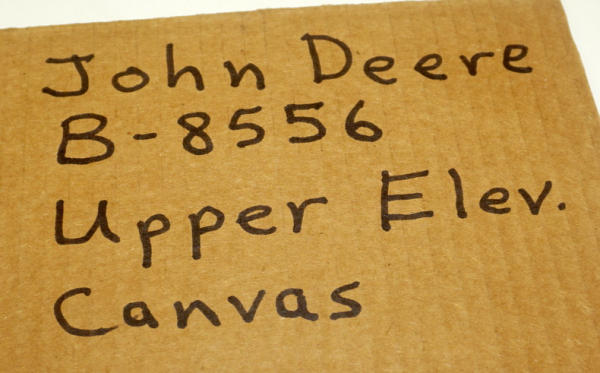 John Deere
B-8556
Upper Elev.
Canvas